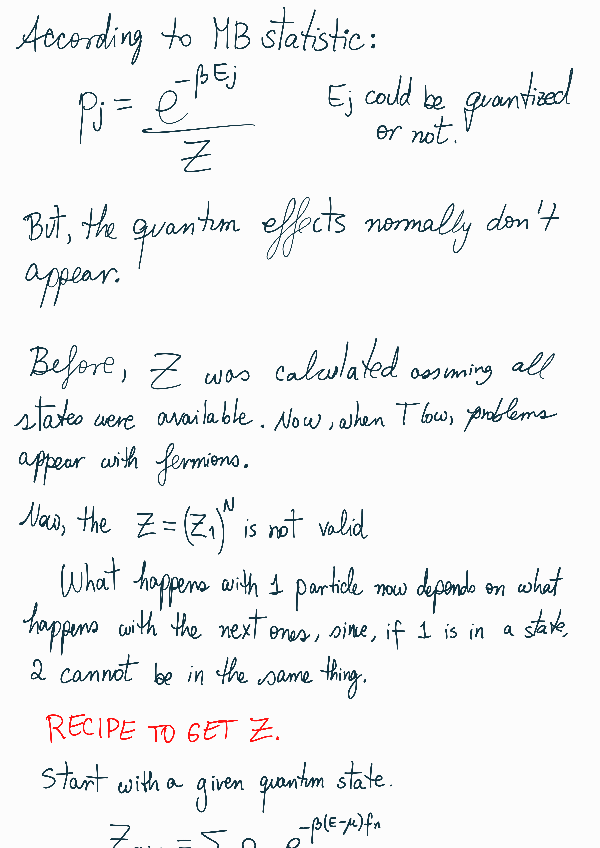 According to MB statistic:
pj = e^-βEj / Z
Ej could be quantized
or not.
But, the quantum effects normally don't
appear.
Before, Z was calculated assuming all
states were available. Now, when T low, problems
appear with fermions.
Now, the Z = (Z1)^N is not valid
What happens with 1 particle now depends on what
happens with the next ones, since, if 1 is in a state,
2 cannot be in the same thing.
RECIPE TO GET Z.
Start with a given quantum state.
e^-β(E-μ)fn